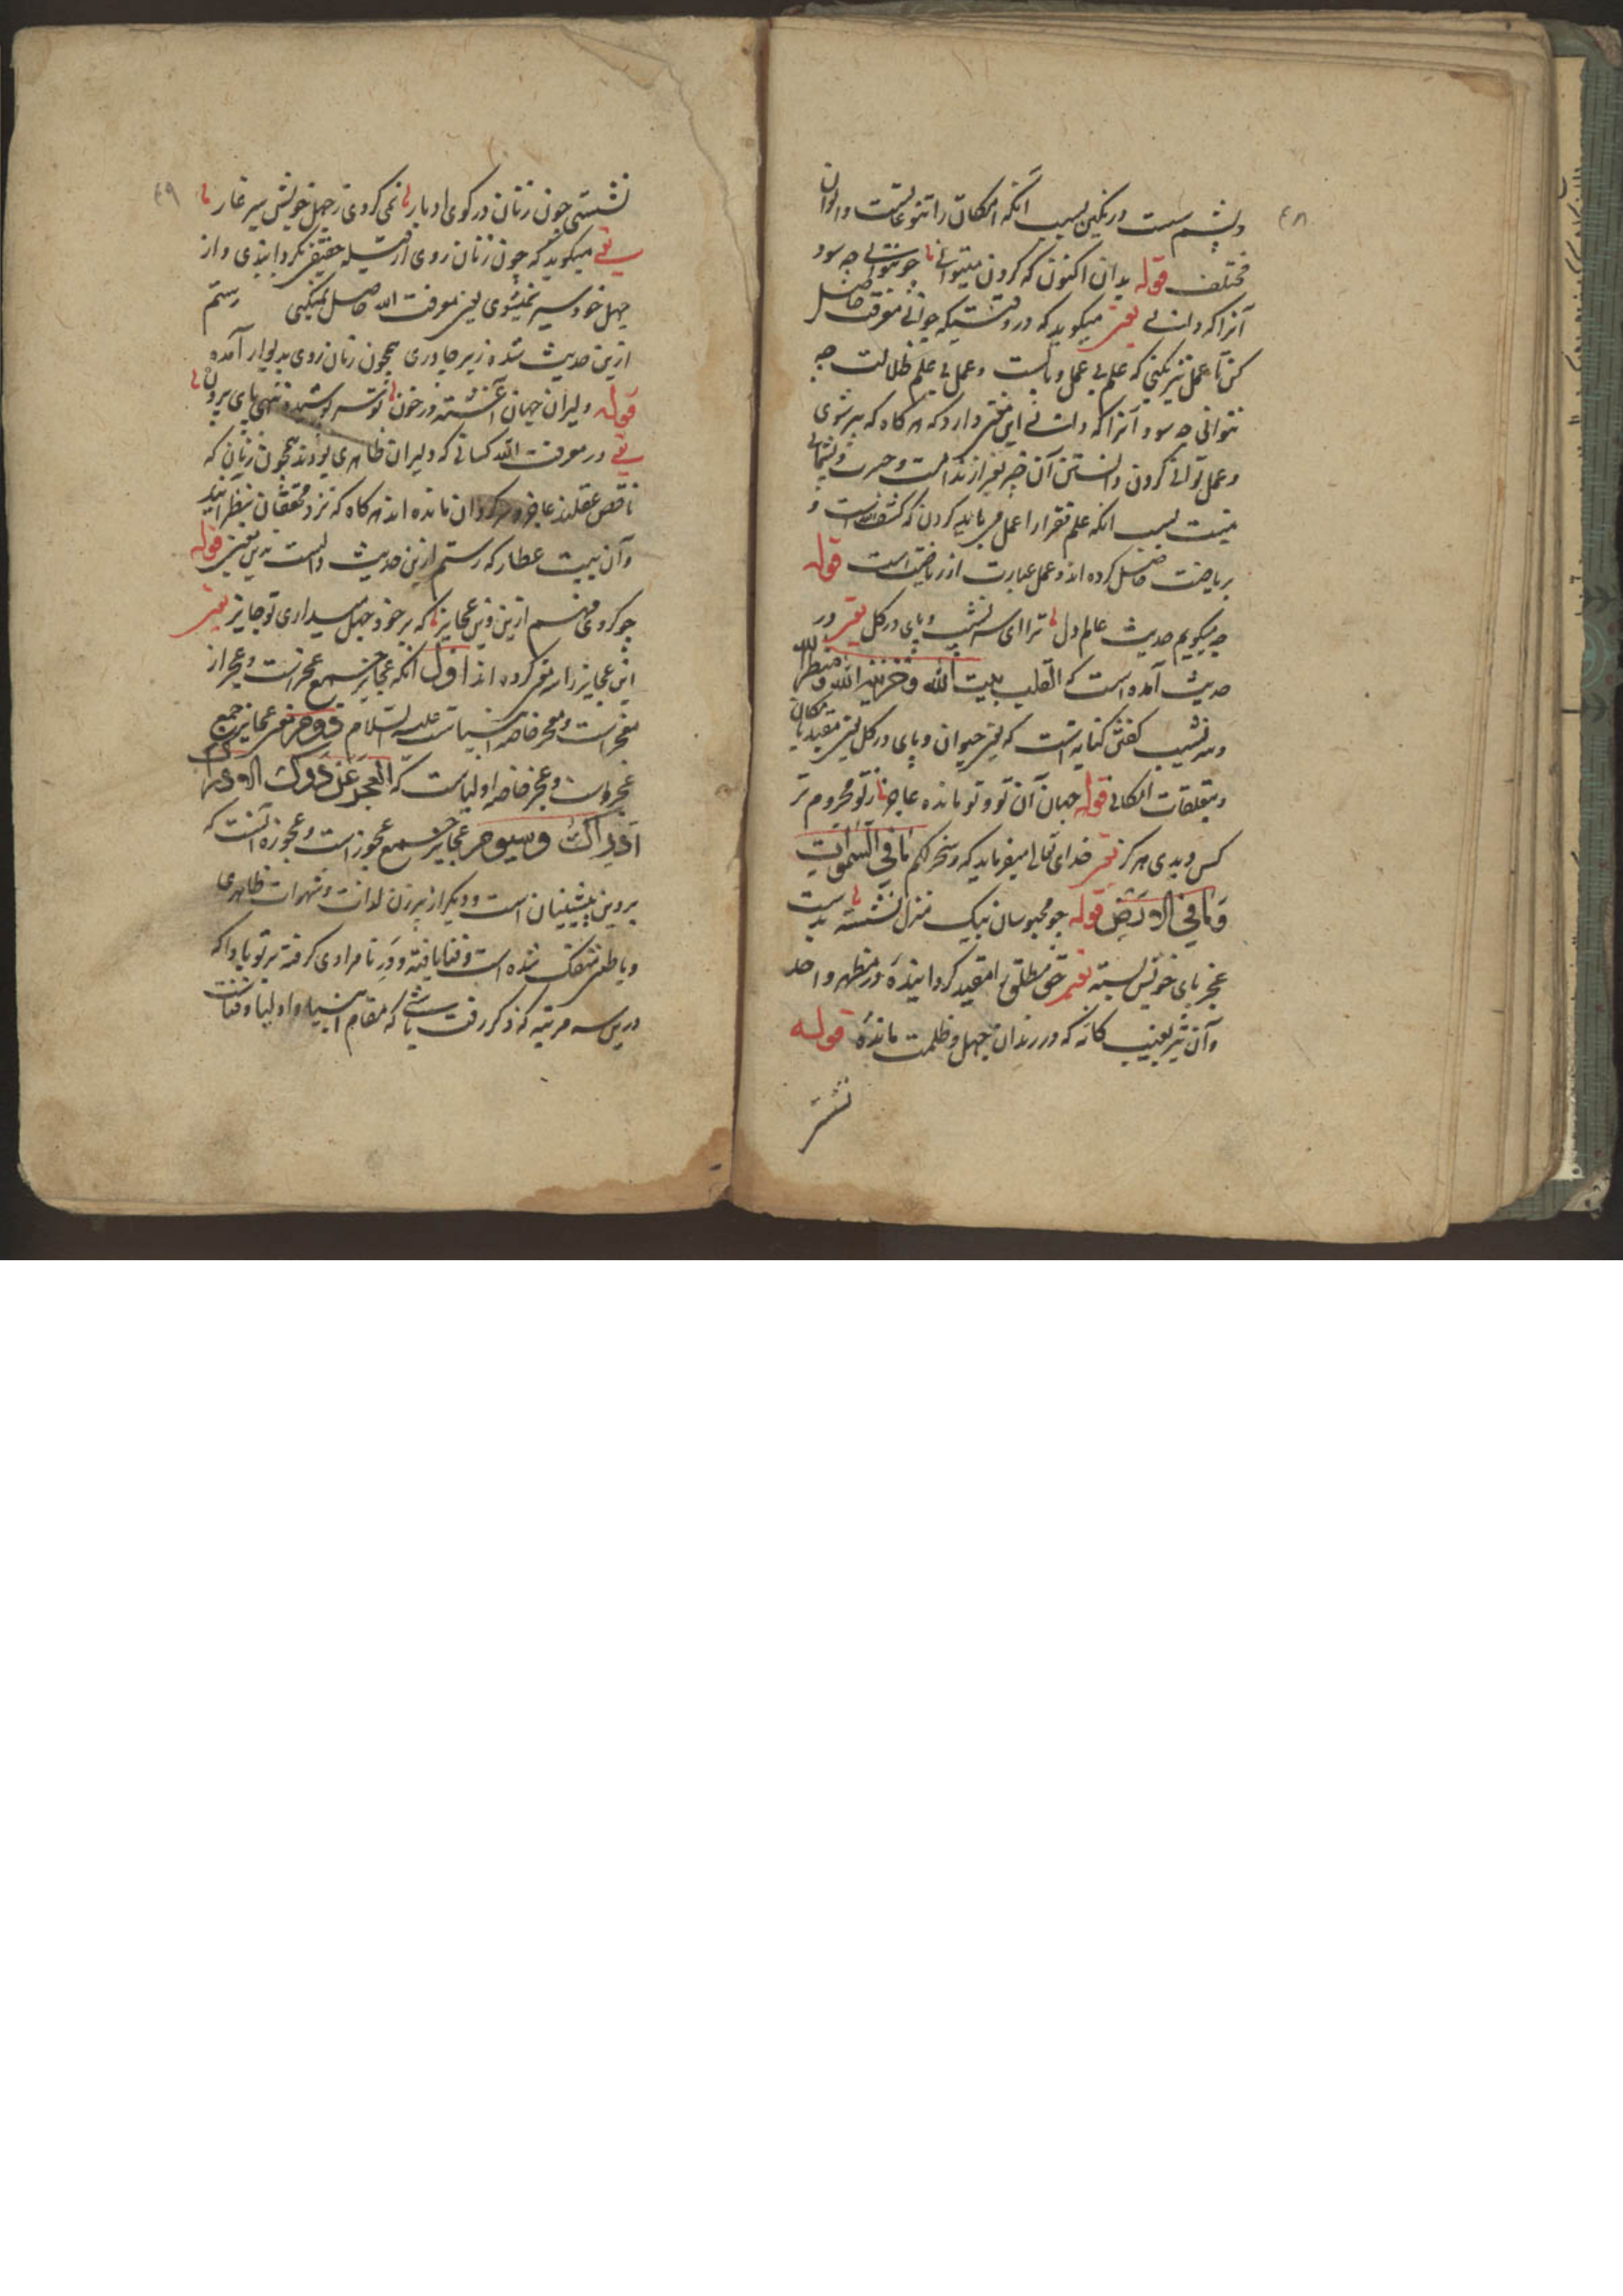 ۴۸
و پشم است و رنگین بسبب آنکه امکان را تنوعاتست و الوان
مختلف قوله بدان اکنون که کردن میتوانی تا چو نتوانی چه سود
آنرا که دانی یعنی میگوید که در وقتیکه جوانی معرفت حاصل
کن تا عمل نیز بکنی که علم بی عمل وبالست و عمل بی علم ظلالت چه
نتوانی چه سود آنرا که دانی این معنی دارد که هر کاه که پیر شوی
و عمل توانی کردن دانستن آن چیز بغیر از ندامت و حسرت و پشیمانی
نیست بسبب آنکه علم فقرا را عمل می باید کردن که کشف است و
بریاضت حاصل کرده اند و عمل عبارت از ریاضت است قوله
چه میگویم حدیث عالم دل ترا ای سر نشیب و پای در گل یعنی در
حدیث آمده است که القلب بیت الله و خزینة الله و منظر الله
و سر نشیب گفتن کنایه است که یعنی حیوان و پای در کل یعنی مقید بامکان
و بتعلقات امکانی قوله جهان آن تو و تو مانده عاجز ز تو محروم تر
کس دیدی هرکز یعنی خدای تعالی میفرماید که و سخر لکم ما فی السموات
و ما فی الارض قوله چو محبوسان بیک منزل نشسته بدست
عجز پای خویش بسته یعنی حق مطلق را مقید کردانیده در مظهر واحد
و آن نیز بغیب کانه که در زندان جهل و ظلمت مانده قوله
نشستی
۴۹
نشستی چون زنان در کوی ادبار نمی کردی ز جهل خویش سیر عار
یعنی میگوید که چون زنان روی از قبیله حقیقی نکردانیدی و از
جهل خود سیر نمیشوی یعنی معرفت الله حاصل نمیکنی رستم
ازین حدیث شده زیر چادری همچون زنان روی بدیوار آمده
قوله دلیران جهان آغشته در خون تو سر پوشیده ننهی پای بیرون
یعنی در معرفت الله کسانی که دلیران ظاهری بودند همچون زنان که
ناقص عقلند عاجز و سرکردان مانده اند هر کاه که نزد محققان بنظر آیند
و آن بیت عطار که رستم ازین حدیث دالست بدین معنی قوله
چو کردی فهم ازین دین عجایز که بر خود جهل میداری تو جایز یعنی
این عجایز را سه معنی کرده اند اول آنکه عجایز جمع عجز است و عجز از
معجز است و معجز خاصه انبیاست علیه السلام دوم یعنی عجایز جمع
عجز است و عجز خاصه اولیاست که العجز عن درک الادراک
ادراک و سیوم عجایز جمع عجوز است و عجوزه آنست که
بر دین پیشینیان است و دیکر از پیر زن لذات و شهوات ظاهری
و باطنی منفک شده است و فنا یافته و در نامرادی کرفته تو باید که
درین سه مرتبه که ذکر رفت باشی که مقام انبیا و اولیا و فناست